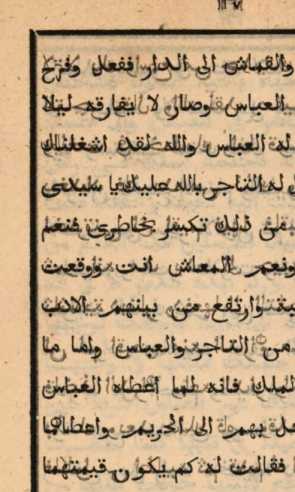 والقماش الى الدار ففعل وفرح
العباس وصار لا يفارقه ليلا
له العباس والله لقد اشغلتك
له التاجر بالله عليك يا سيدى
من ذلك تكسر بخاطرى فنعم
ونعم المعاش انت ووقعت
وارتفع من بينهم الادب
من التاجر والعباس واما ما
الملك فانه لما اعطاه العباس
بهم الى الحريم واعطاها
فقالت له كم يكون قيمتهما